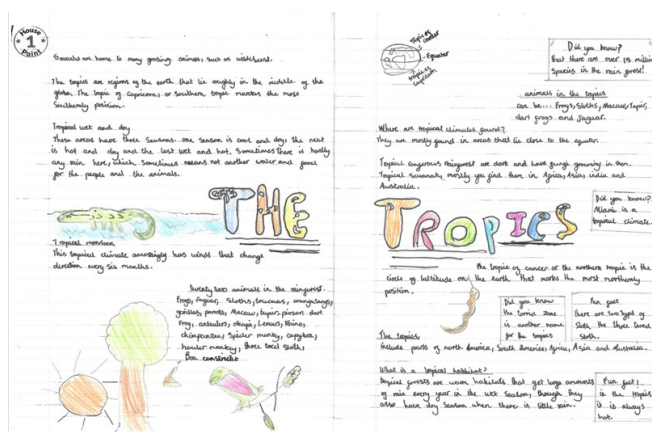 House
1
Point
Savanahs are home to many grazing animals, such as wildebeest.
The tropics are regions of the earth that lie roughly in the middle of the
globe. The tropic of Capricorn, or Southern tropic marks the most
Southernly position.
Tropical wet and dry
These areas have three Seasons. one Season is cool and dry; the next
is hot and dry and the last wet and hot. Sometimes there is hardly
any rain here, which Sometimes means not enough water and food
for the people and the animals.
THE
Tropical monsoon
This tropical climate amazingly has winds that change
direction every Six months.
twenty two animals in the rainforest.
Frogs, Jaguar, Sloths, toucans, orangutangs,
gorillas, parrots, Macaw, tapir, poison dart
Frog, anteaters, okapi, Lemur, Rhino,
chimpanzee, Spider monkey, capybara,
howler monkey, three toed sloth,
Boa constrictor
Tropic of cancer
Equator
tropic of capricorn
Did you know?
that there are over 15 million
Species in the rain forest!
animals in the tropics
can be... Frogs, Sloths, Macaw, Tapir,
dart frogs and Jaguar.
Where are tropical climates found?
They are mostly found in areas that lie close to the equator.
Tropical rainforest are dark and have fungi growing in them.
Tropical Savanah, mostly you find them in Africa, Asia, india and
Australia.
TROPICS
Did you know?
is a
tropical climate.
the tropic of cancer or the northern tropic is the
circle of latitude on the earth that marks the most northernly
position.
Did you know
the torrid zone
is another name
for the tropics
Fun fact
there are two typs of
Sloth, the three toed
sloth.
The tropics
include parts of north America, South America, Africa, Asia and Australia.
What is a tropical habbitat?
tropical forests are warm habitats that get large amounts
of rain every year in the wet Season, though they
also have dry Season when there is little rain.
Fun fact!
in the tropics
it is always
hot.